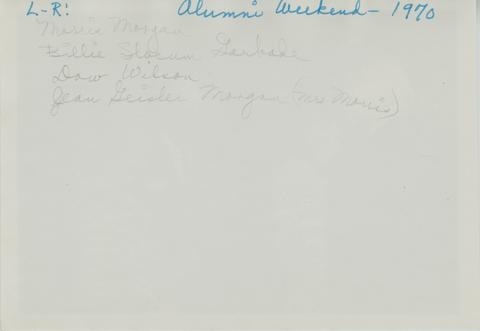 L-R: Alumni Weekend - 1970
Morris Morgan
Billie Slocum Garbade
Dow Wilson
Jean Geisler Morgan (Mrs Morris)